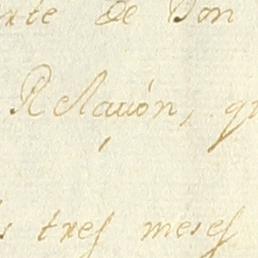 de Don
Relacion,
tres meses